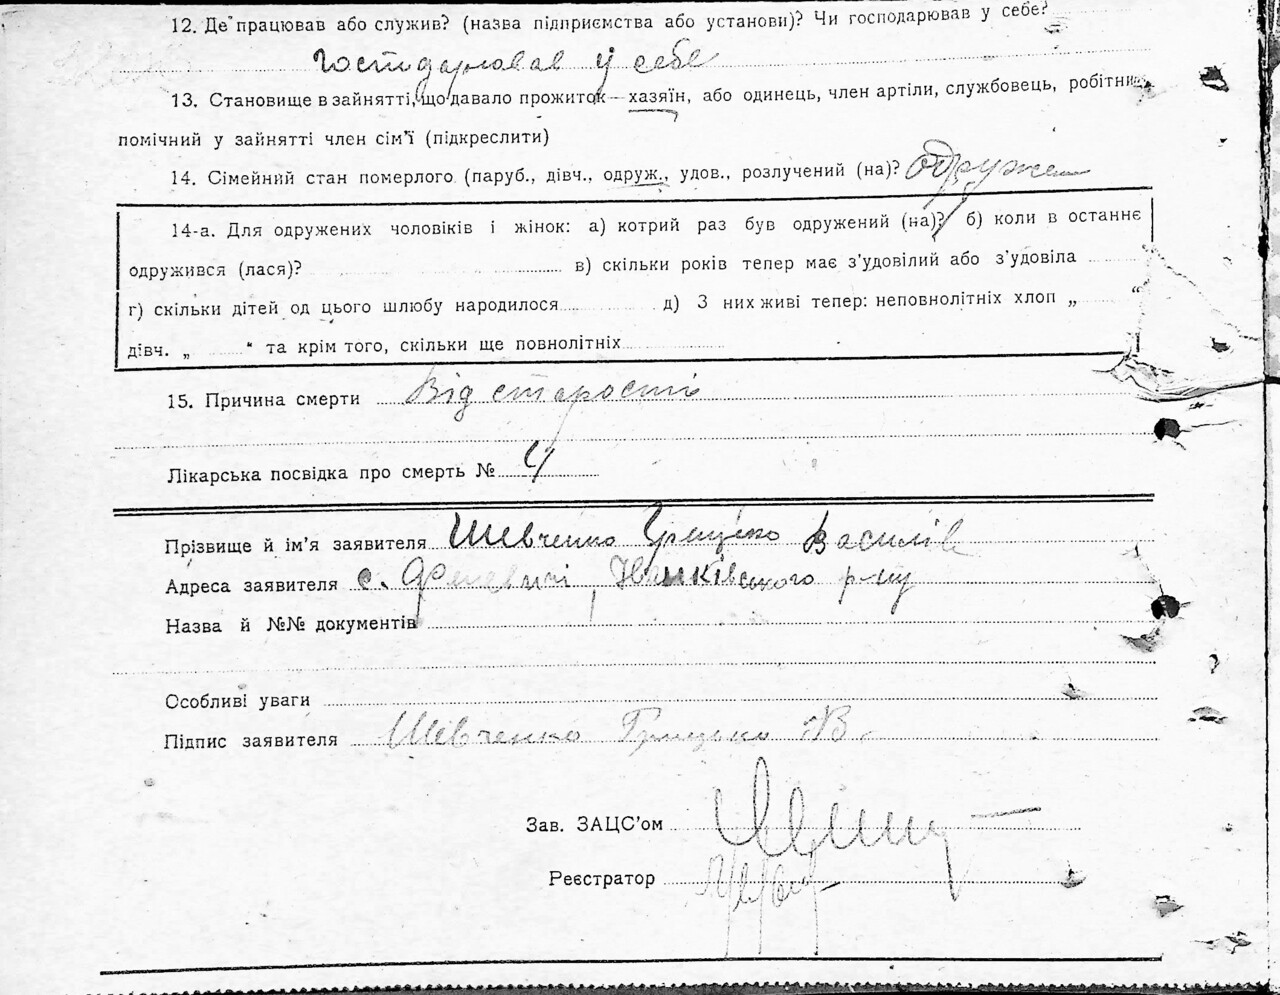 12. Де працював або служив? (назва підприємства або установи)? Чи господарював у себе?
Господарював у себе
13. Становище в зайнятті, що давало прожиток — хазяїн, або одинець, член артіли, службовець, робітник,
помічний у зайнятті член сім'ї (підкреслити)
14. Сімейний стан померлого (паруб., дівч., одруж., удов., розлучений (на)? одружен
14-а. Для одружених чоловіків і жінок: а) котрий раз був одружений (на)? б) коли в останнє
одружився (лася)? в) скільки років тепер має з'удовілий або з'удовіла
г) скільки дітей од цього шлюбу народилося д) З них живі тепер: неповнолітніх хлоп „ “
дівч. „ “ та крім того, скільки ще повнолітніх
15. Причина смерти Від старости
Лікарська посвідка про смерть №
Прізвище й ім'я заявителя Шевченко Грицько Василів
Адреса заявителя с. Іванківського р-ну
Назва й №№ документів
Особливі уваги
Підпис заявителя Шевченко Грицько В.
Зав. ЗАЦС'ом
Реєстратор